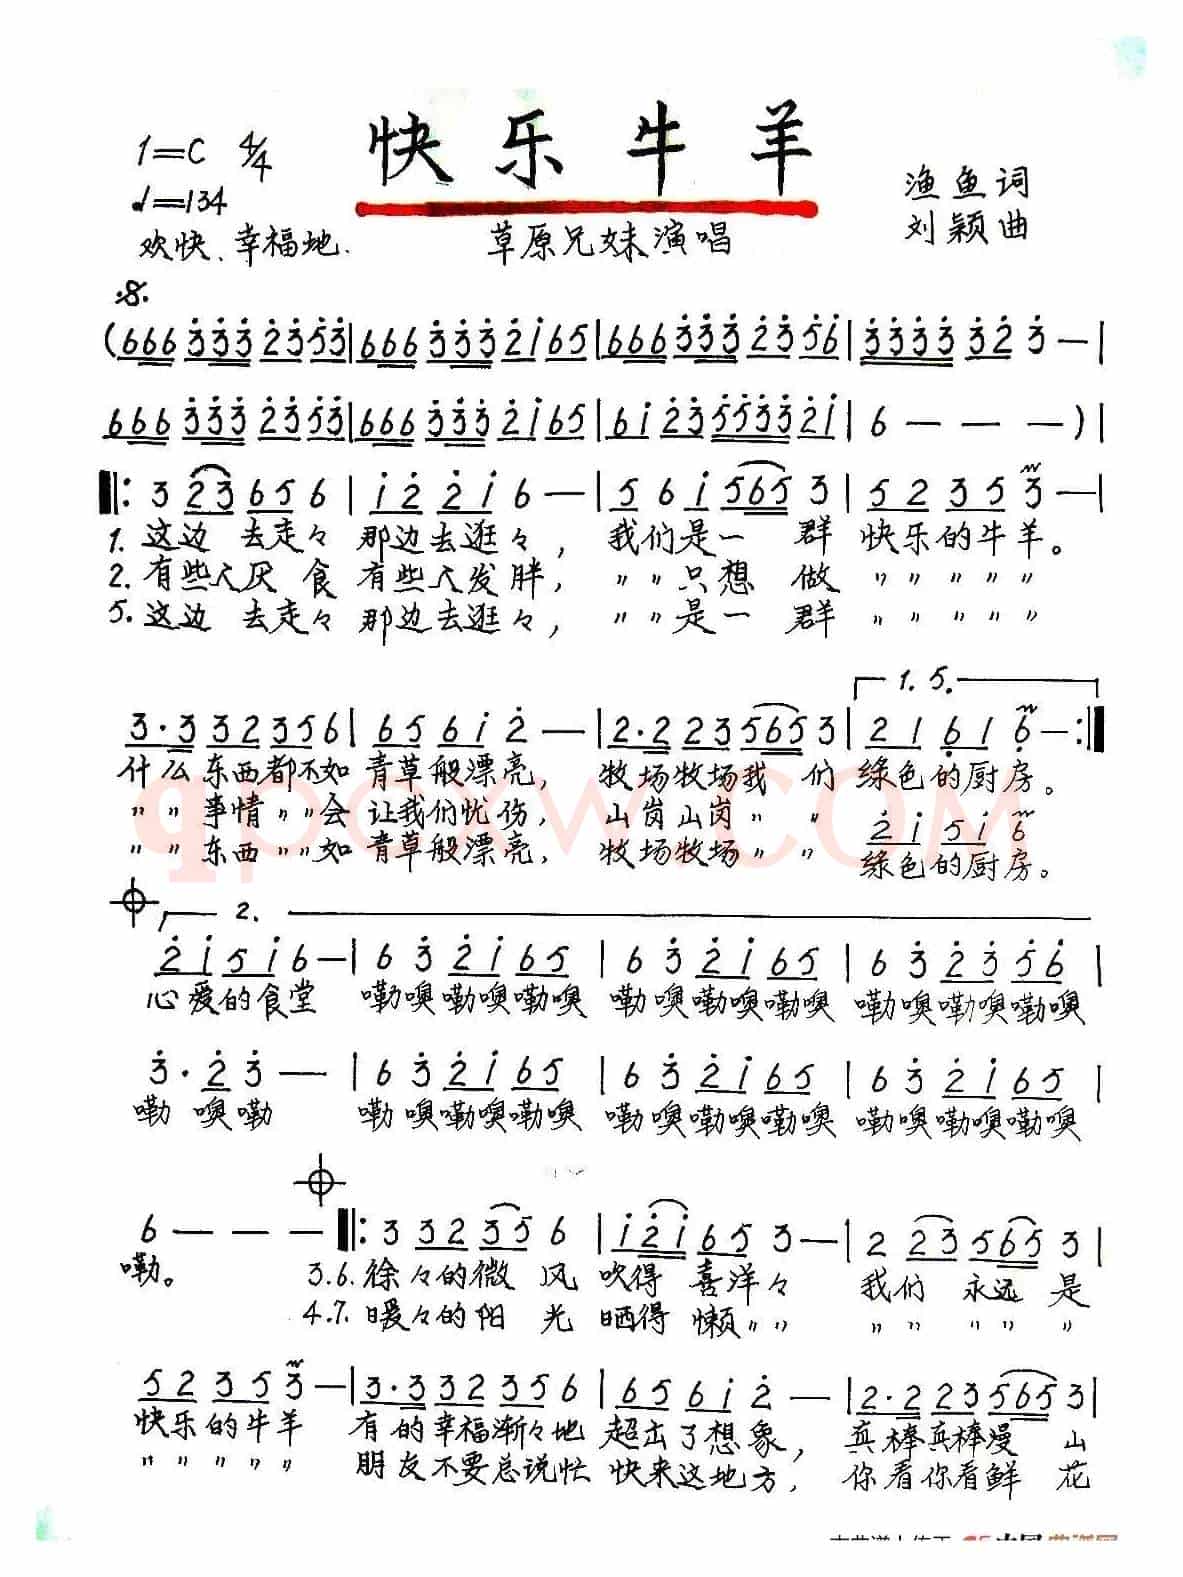 快乐牛羊
1=C 4/4
♩=134
欢快、幸福地.
草原兄妹演唱
渔鱼词
刘颖曲
(666 3̇3̇3̇ 2̇3̇5̇3̇|666 3̇3̇3̇ 2̇1̇65|666 3̇3̇3̇ 2̇3̇5̇6̇|3̇3̇3̇3̇ 3̇2̇ 3̇ —|
666 3̇3̇3̇ 2̇3̇5̇3̇|666 3̇3̇3̇ 2̇1̇65|61̇2̇3̇ 5̇5̇3̇3̇ 2̇1̇|6 — — —)|
‖: 3 23 65 6 | 1̇2̇ 2̇1̇ 6 — | 5 6 1̇ 565 3 | 52 35 3 — |
1. 这边 去走々 那边去逛々， 我们是一 群 快乐的牛羊。
2. 有些人厌 食 有些人发胖， 〃〃只想 做 〃〃〃〃〃
5. 这边 去走々 那边去逛々， 〃〃是一 群 〃〃〃〃〃
1. 5.
3·3 32 35 6 | 65 61̇ 2̇ — | 2·2 23 565 3 | 21 6̣1 6̣ — :‖
什么东西都不如 青草般漂亮， 牧场牧场我 们 绿色的厨房。
〃〃事情〃〃会 让我们忧伤， 山岗山岗〃 〃
2̇1̇ 51̇ 6̇
〃〃东西〃〃如 青草般漂亮， 牧场牧场〃 〃 绿色的厨房。
2.
2̇1̇ 51̇ 6 — | 6 3̇ 2̇1̇ 65 | 6 3̇ 2̇1̇ 65 | 6 3̇ 2̇3̇ 5̇6̇ |
心爱的食堂 嘞噢嘞噢嘞噢 嘞噢嘞噢嘞噢 嘞噢嘞噢嘞噢
3̇· 2̇ 3̇ — | 6 3̇ 2̇1̇ 65 | 6 3̇ 2̇1̇ 65 | 6 3̇ 2̇1̇ 65 |
嘞 噢嘞 嘞噢嘞噢嘞噢 嘞噢嘞噢嘞噢 嘞噢嘞噢嘞噢
6 — — — ‖: 3 32 35 6 | 1̇2̇1̇ 65 3 — | 2 23 565 3 |
嘞。 3.6. 徐々的微 风 吹得 喜洋々 我们 永远 是
4.7. 暖々的阳 光 晒得 懒〃〃 〃〃 〃〃 〃
52 35 3 — | 3·3 32 35 6 | 65 61̇ 2̇ — | 2·2 23 565 3 |
快乐的牛羊 有的幸福渐々地 超出了想象， 真棒真棒漫 山
〃〃〃〃〃 朋友不要总说忙 快来这地方， 你看你看鲜 花
qpcxw.com